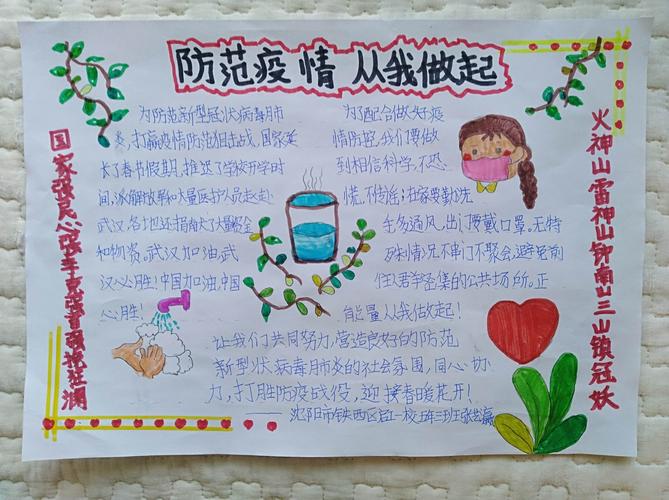 防范疫情 从我做起
国家强民心强李克强首领挽狂澜
为防范新型冠状病毒肺
炎,打赢疫情防范狙击战,国家延
长了春节假期,推迟了学校开学时
间,派解放军和大量医护人员赶赴
武汉,各地还捐了大量资金
和物资。武汉加油,武
汉必胜!中国加油,中国
必胜!
为了配合做好疫
情防控,我们要做
到相信科学,不恐
慌,不传谣;在家要勤洗
手多通风,出门要戴口罩。无特
殊情况不串门不聚会,避免前
往人群密集的公共场所。正
能量从我做起!
让我们共同努力,营造良好的防范
新型状病毒肺炎的社会氛围,同心协
力,打胜防疫战役,迎接春暖花开!
——沈阳市铁西区启工一校五年三班张
火神山雷神山钟南山三山镇冠妖